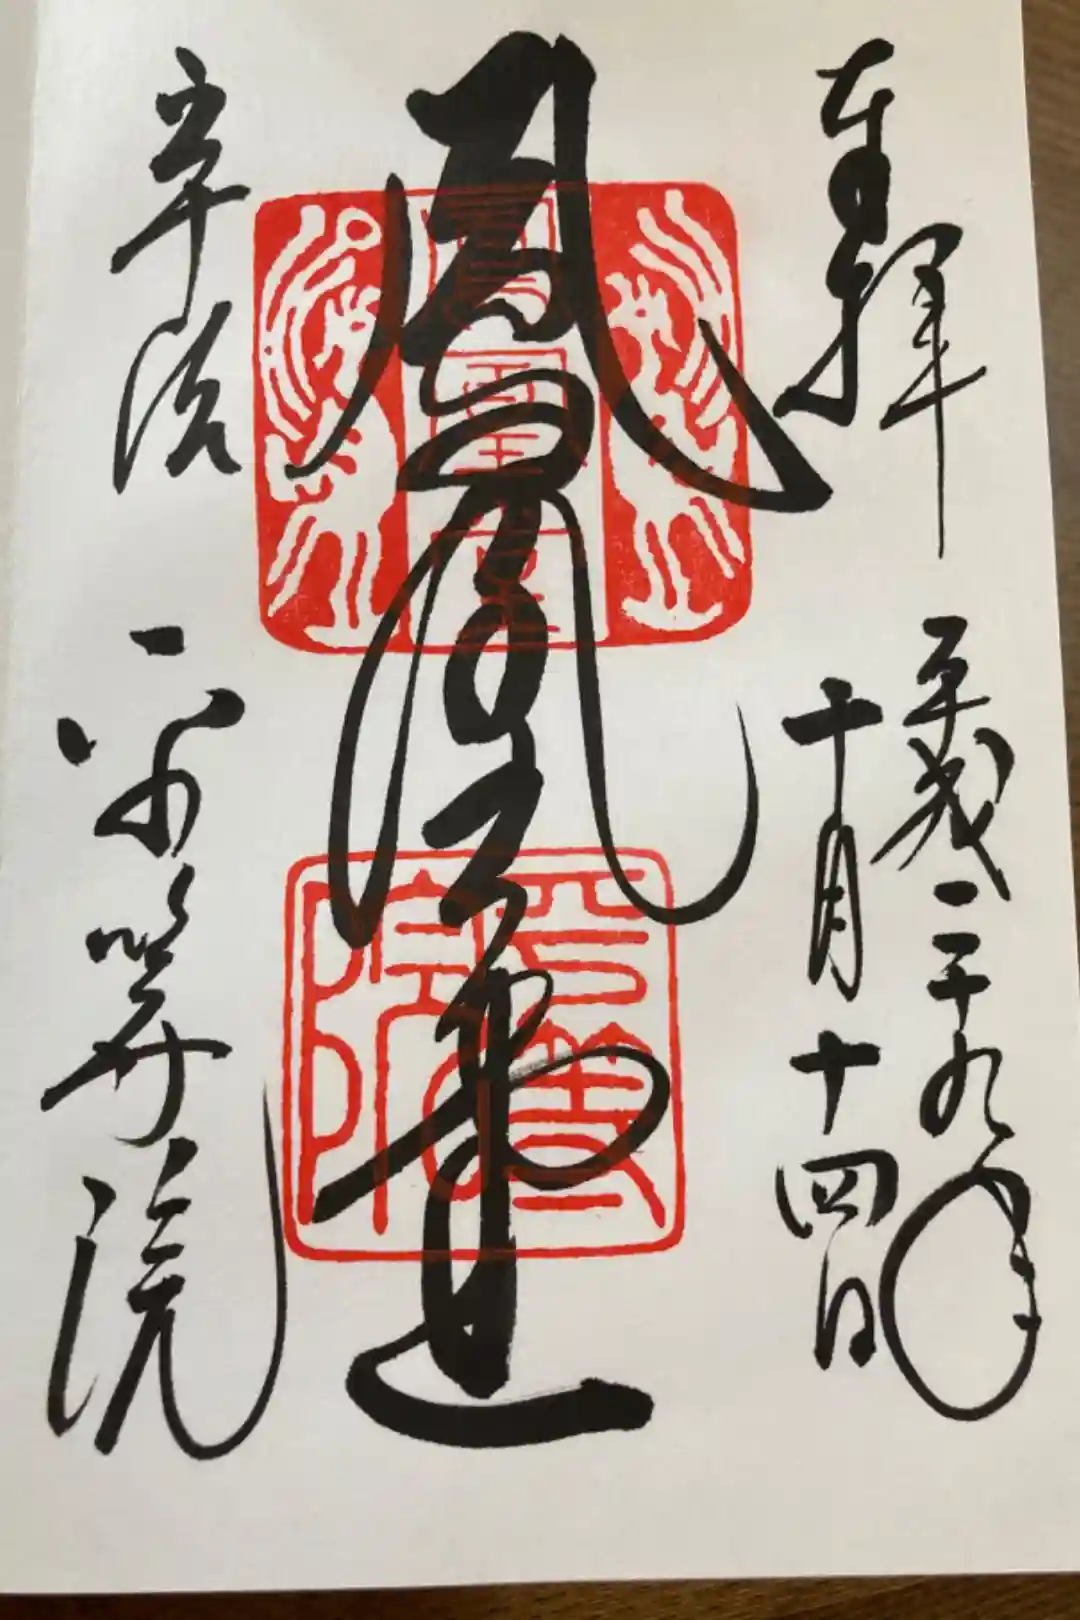 奉拝
平成二十九年
十月十四日
鳳凰堂
鳳凰堂
平等院
宇治
平等院